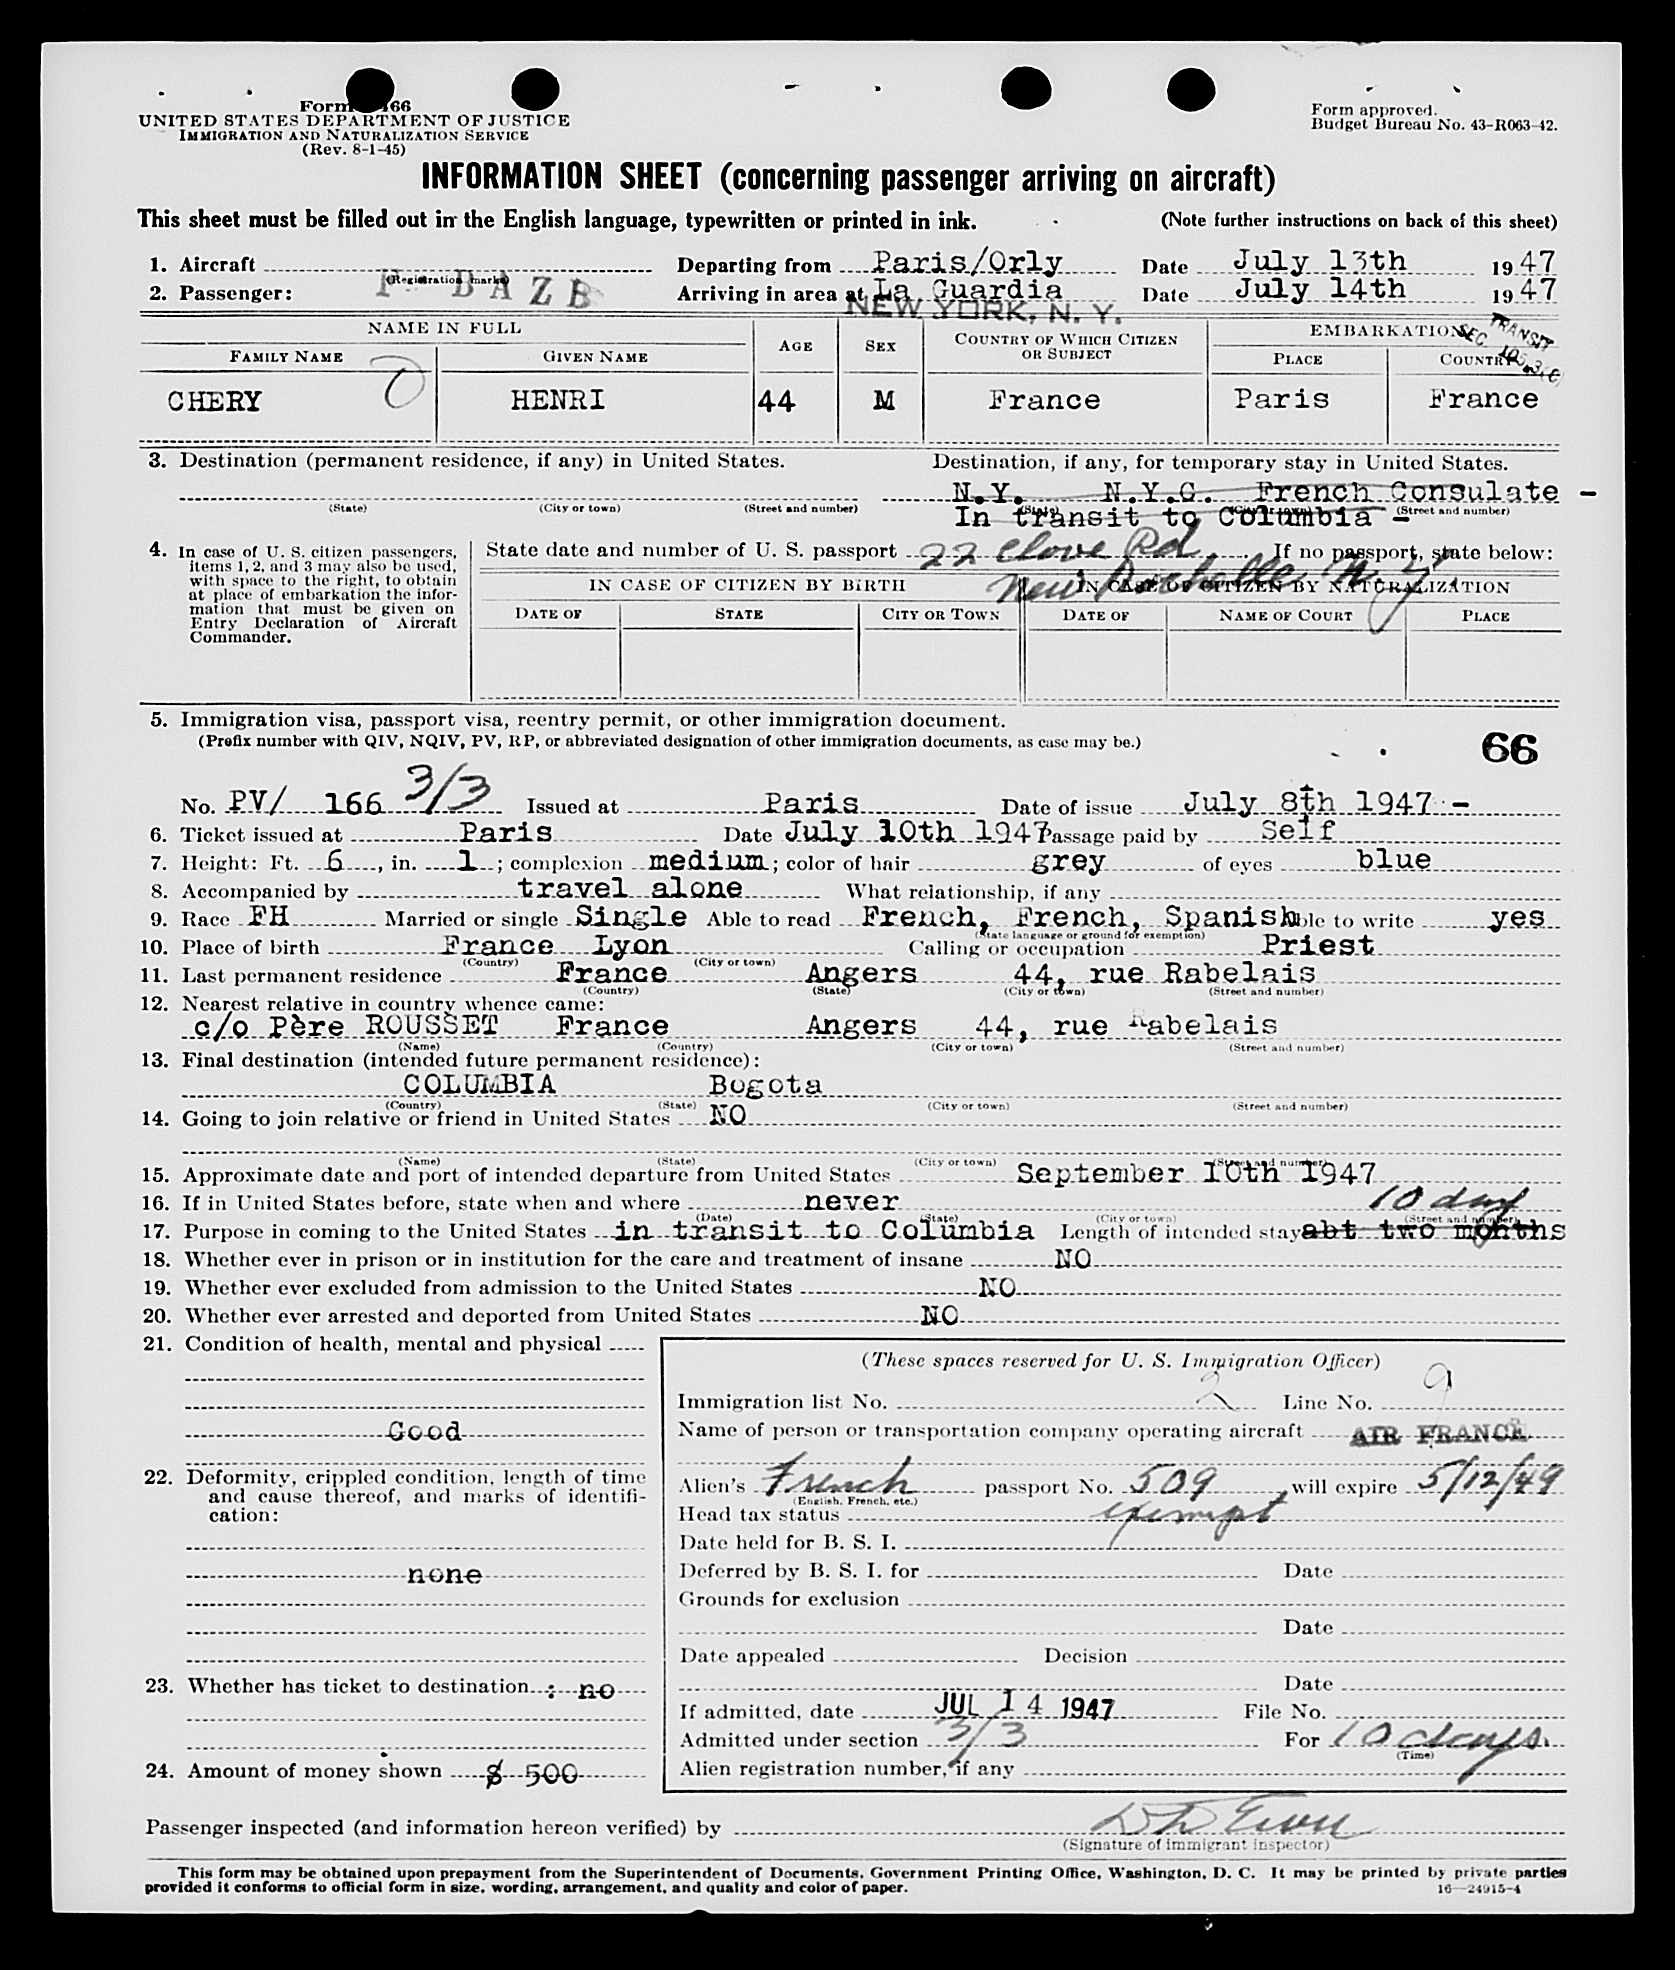 Form 466
UNITED STATES DEPARTMENT OF JUSTICE
IMMIGRATION AND NATURALIZATION SERVICE
(Rev. 8-1-45)
Form approved.
Budget Bureau No. 43-R063-42.
INFORMATION SHEET (concerning passenger arriving on aircraft)
This sheet must be filled out in the English language, typewritten or printed in ink. (Note further instructions on back of this sheet)
1. Aircraft F BAZB (Registration marks) Departing from Paris/Orly Date July 13th 1947
2. Passenger: Arriving in area at La Guardia Date July 14th 1947
NEW YORK, N. Y.
NAME IN FULL AGE SEX COUNTRY OF WHICH CITIZEN OR SUBJECT EMBARKATION
TRANSIT
SEC
FAMILY NAME GIVEN NAME PLACE COUNTRY
CHERY HENRI 44 M France Paris France
3. Destination (permanent residence, if any) in United States. Destination, if any, for temporary stay in United States.
N.Y. N.Y.C. French Consulate -
(State) (City or town) (Street and number) (State) (City or town) (Street and number)
In transit to Columbia -
4. In case of U. S. citizen passengers, items 1, 2, and 3 may also be used, with space to the right, to obtain at place of embarkation the information that must be given on Entry Declaration of Aircraft Commander.
State date and number of U. S. passport 22 Clove Rd If no passport, state below:
New Rochelle N.Y.
IN CASE OF CITIZEN BY BIRTH IN CASE OF CITIZEN BY NATURALIZATION
DATE OF STATE CITY OR TOWN DATE OF NAME OF COURT PLACE
5. Immigration visa, passport visa, reentry permit, or other immigration document.
(Prefix number with QIV, NQIV, PV, RP, or abbreviated designation of other immigration documents, as case may be.)
66
No. PV/ 166 3/3 Issued at Paris Date of issue July 8th 1947 -
6. Ticket issued at Paris Date July 10th 1947 Passage paid by Self
7. Height: Ft. 6, in. 1; complexion medium; color of hair grey of eyes blue
8. Accompanied by travel alone What relationship, if any
9. Race FH Married or single Single Able to read French, French, Spanish Able to write yes
(State language or ground for exemption)
10. Place of birth France Lyon Calling or occupation Priest
(Country) (City or town)
11. Last permanent residence France Angers 44, rue Rabelais
(Country) (State) (City or town) (Street and number)
12. Nearest relative in country whence came:
c/o Père ROUSSET France Angers 44, rue Rabelais
(Name) (Country) (City or town) (Street and number)
13. Final destination (intended future permanent residence):
COLUMBIA Bogota
(Country) (State) (City or town) (Street and number)
14. Going to join relative or friend in United States NO
(Name) (State) (City or town) (Street and number)
15. Approximate date and port of intended departure from United States September 10th 1947
16. If in United States before, state when and where never
10 days
(Date) (State) (City or town) (Street and number)
17. Purpose in coming to the United States in transit to Columbia Length of intended stay abt two months
18. Whether ever in prison or in institution for the care and treatment of insane NO
19. Whether ever excluded from admission to the United States NO
20. Whether ever arrested and deported from United States NO
21. Condition of health, mental and physical
Good
22. Deformity, crippled condition, length of time and cause thereof, and marks of identification:
none
23. Whether has ticket to destination : no
24. Amount of money shown $ 500
(These spaces reserved for U. S. Immigration Officer)
Immigration list No. 2 Line No. 9
Name of person or transportation company operating aircraft AIR FRANCE
Alien's French passport No. 509 will expire 5/12/49
(English, French, etc.)
Head tax status exempt
Date held for B. S. I.
Deferred by B. S. I. for Date
Grounds for exclusion
Date
Date appealed Decision
Date
If admitted, date JUL 14 1947 File No.
Admitted under section 3/3 For 10 days.
(Time)
Alien registration number, if any
Passenger inspected (and information hereon verified) by
(Signature of immigrant inspector)
This form may be obtained upon prepayment from the Superintendent of Documents, Government Printing Office, Washington, D. C. It may be printed by private parties
provided it conforms to official form in size, wording, arrangement, and quality and color of paper. 16—24915-4